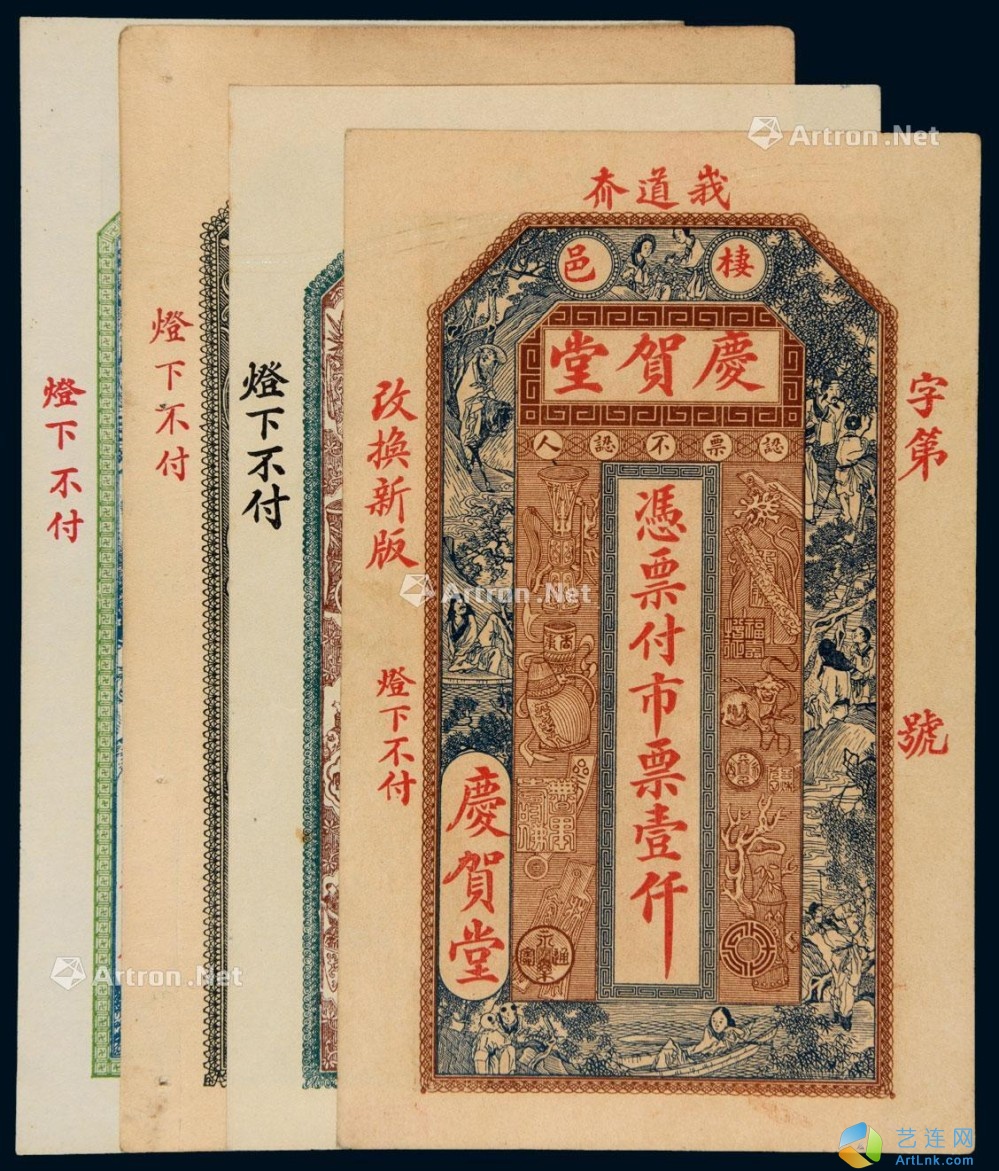 峩道夼
棲邑
慶賀堂
認票不認人
字第
號
憑票付市票壹仟
慶賀堂
改換新版
燈下不付
燈下不付
燈下不付
燈下不付
Artron.Net
Artron.Net
Artron.Net
艺连网
ArtLnk.com